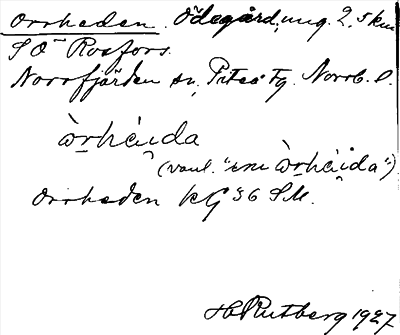 Orrheden. Ödegård, ung. 2,5 km
SO Rosfors.
Norrfjärden sn, Piteå tg. Norrb. l.
òrhèi̯da
(vanl. "
òrhèi̯da")
Orrheden kG 36 SM.
H Rutberg 1927